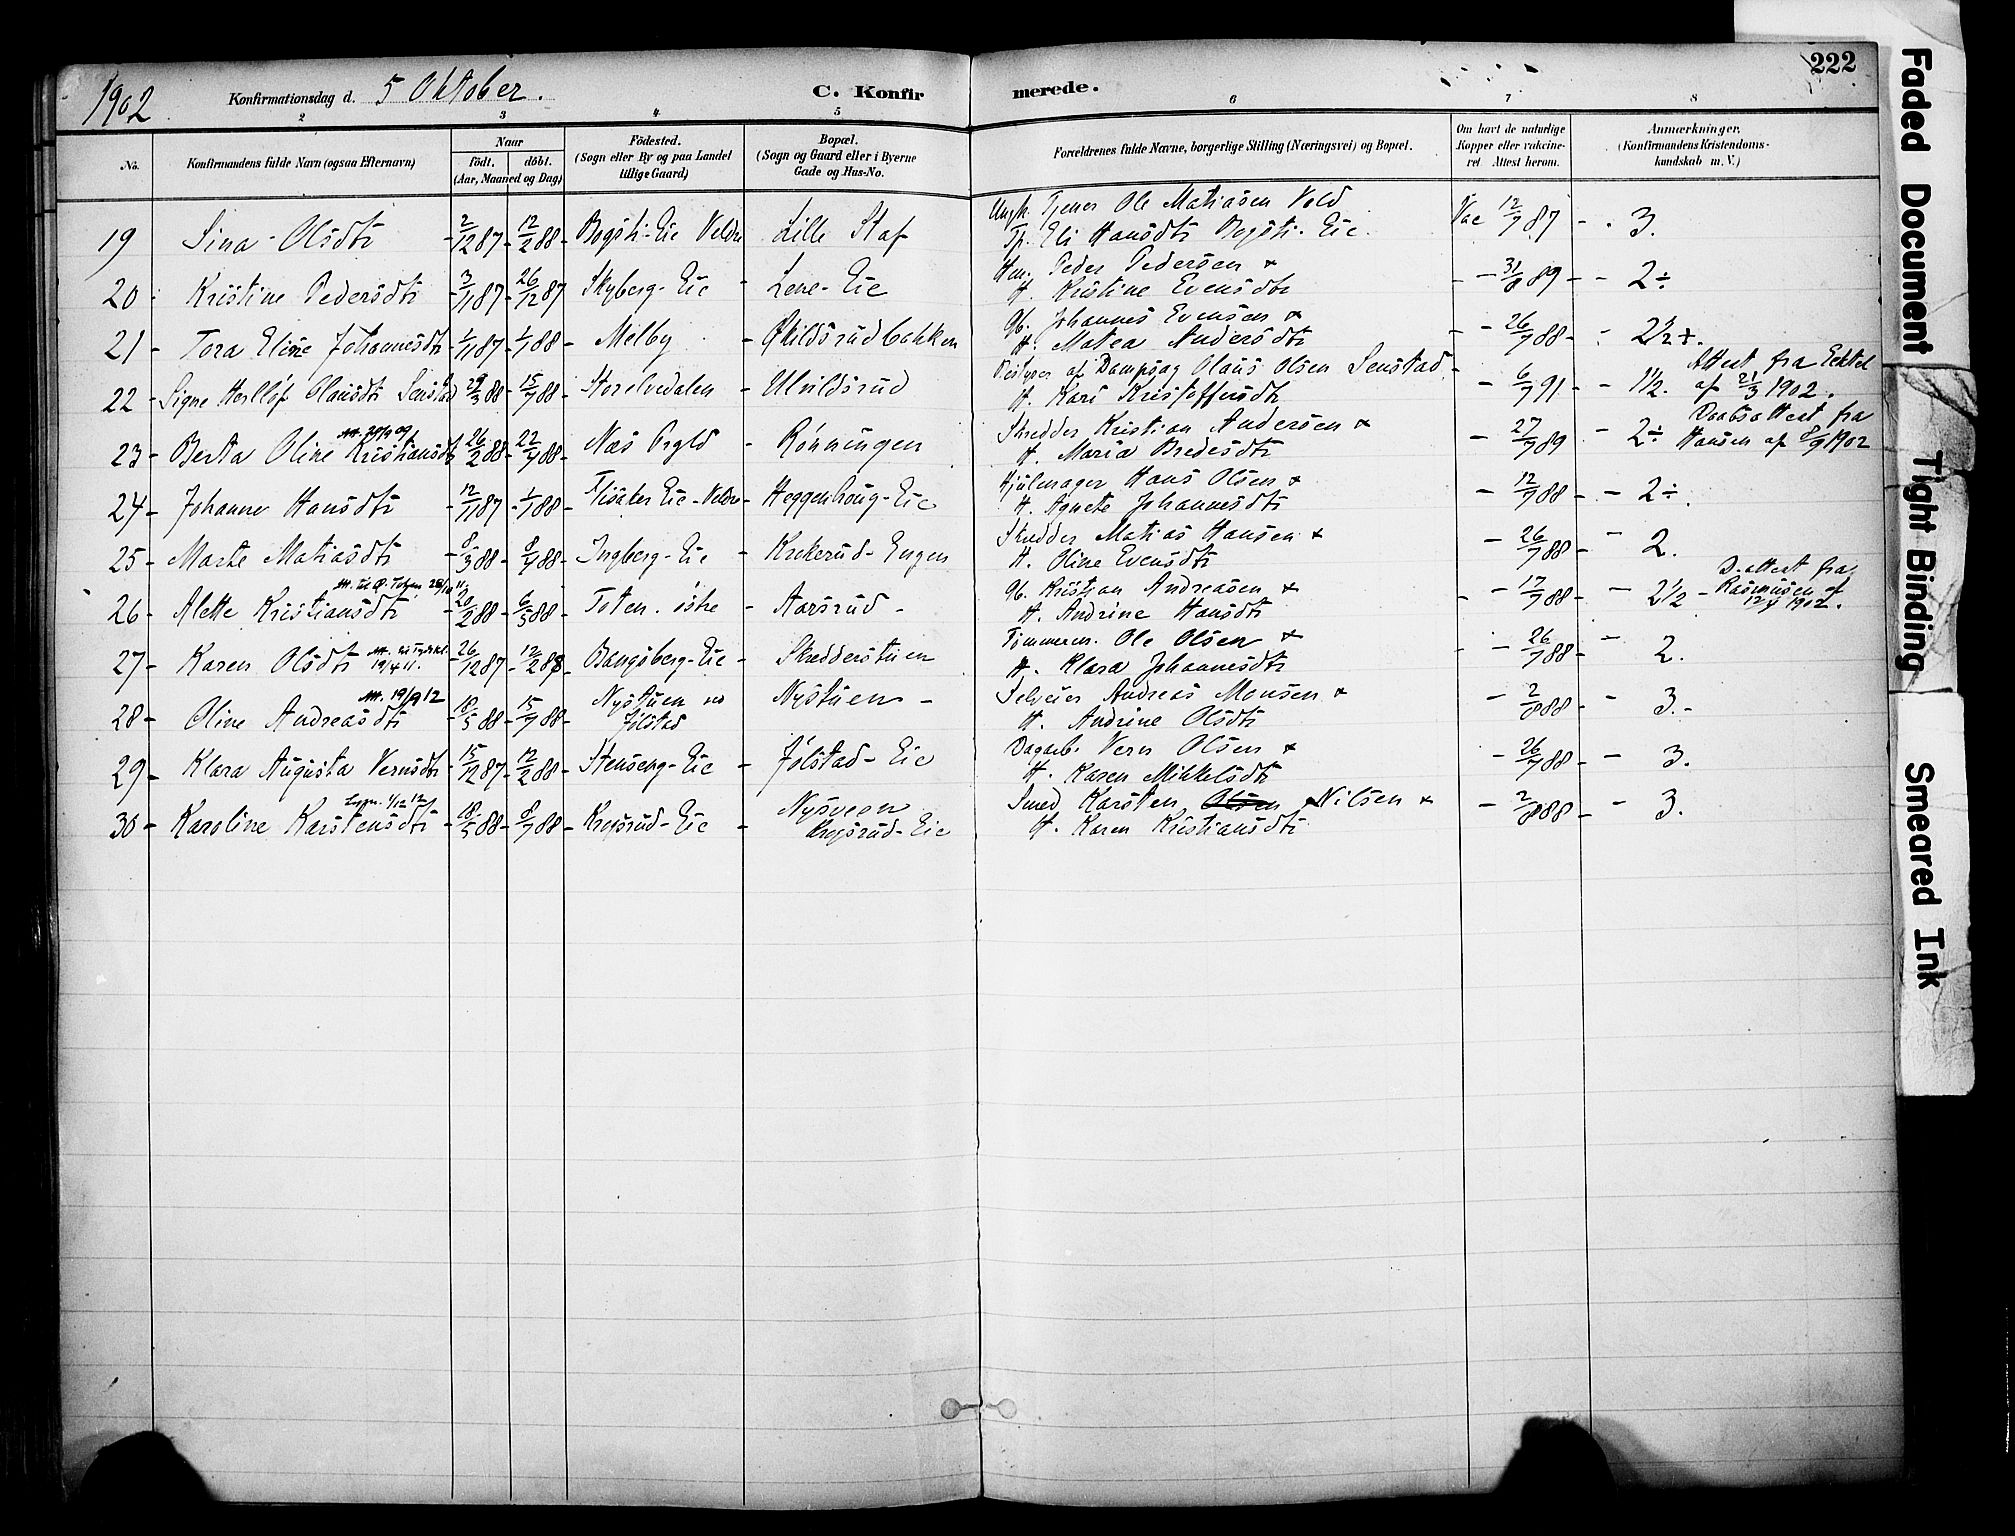 222
1902 Konfirmationsdag d. 5 Oktober. C. Konfirmerede.
2 3 4 5 6 7 8
No. Konfirmandens fulde Navn (ogsaa Efternavn) Naar født. døbt. (Aar, Maaned og Dag)
Fødested. (Sogn eller By og paa Landet tillige Gaard)
Bopæl. (Sogn og Gaard eller i Byerne Gade og Hus-No.
Forældrenes fulde Navne, borgerlige Stilling (Næringsvei) og Bopæl.
Om havt de naturlige Kopper eller vakcineret. Attest herom.
Anmærkninger. (Konfirmandens Kristendomskundskab m. V.)
19 Sina Olsdtr 2/12 87 - 12/2 88 - Bogsti-Eie Veldre Lille Staf Ungk. Tjener Ole Matiasen Vold
Tp. Eli Hansdtr Bogsti-Eie. Vac 12/7 87 - 3.
20 Kristine Pedersdtr 3/11 87 - 26/12 87 Skyberg-Eie - Lene-Eie Hm. Peder Pedersen &
H. Kristine Evensdtr - 31/8 89 - 2÷
21 - Tora Eline Johannesdtr 1/11 87 - 1/1 88 - Melby - Økildsrudbakken Gb. Johannes Evensen &
H. Matea Andersdtr - 26/7 88 - 2½ +.
22 - Signe Herlløf Olausdtr Senstad 29/3 88 - 15/7 88 - Storelvedalen - Ulvildsrud Bestyrer af Dampsag Olaus Olsen Senstad
H. Kari Kristoffersdtr - 6/7 91 - 1½. Attest fra
af 21/3 1902.
23 - Berta Oline Kristiansdtr 26/2 88 - 22/4 88 - Næs Prgld - Rønningen Skredder Kristian Andersen &
H. Maria Bredesdtr - 27/7 89 - 2÷ Daabsattest fra
Hansen af 8/9 1902
24 - Johanne Hansdtr 12/11 87 - 1/1 88 - Flisaker Eie - Veldre - Heggenhoug-Eie Hjulmager Hans Olsen &
H. Agnete Johannesdtr - 12/7 88 - 2÷.
25 - Marte Matiasdtr 8/3 88 - 8/4 88 - Ingberg-Eie - Krekerud-Engen Skredder Matias Hansen &
H. Oline Evensdtr - 26/7 88 - 2.
26 - Alette Kristiansdtr 20/2 88 - 6/5 88 - Toten. østre - Aarsrud - Gb. Kristian Andreasen &
H. Andrine Hansdtr - 17/7 88 - 2½ - D. attest fra
Rasmussen af
12/4 1902.
27 - Karen Olsdtr 19/4 11. 26/12 87 - 12/2 88 - Bangsberg-Eie - Skredderstuen Tømmerm. Ole Olsen &
H. Klara Johannesdtr - 26/7 88 - 2.
28 - Oline Andreasdtr Att. 19/9 12 18/5 88 - 15/7 88 - Nystuen
Jølstad Nystuen - Selveier Andreas Monsen &
H. Andrine Olsdtr - 2/8 88 - 3.-
29 - Klara Augusta Vernsdtr 15/12 87 - 12/2 88 - Stenseng-Eie - Jølstad-Eie Dagarb. Vern Olsen &
H. Karen Mikkelsdtr - 26/7 88 - 3.
30 - Karoline Karstensdtr 18/5 88 - 8/7 88 - Krogsrud-Eie - Nysveen
Krogsrud-Eie Smed Karsten Olsen Nilsen &
H. Karen Kristiansdtr - 2/8 88 - 3.
Faded Document
Tight Binding
Smeared Ink